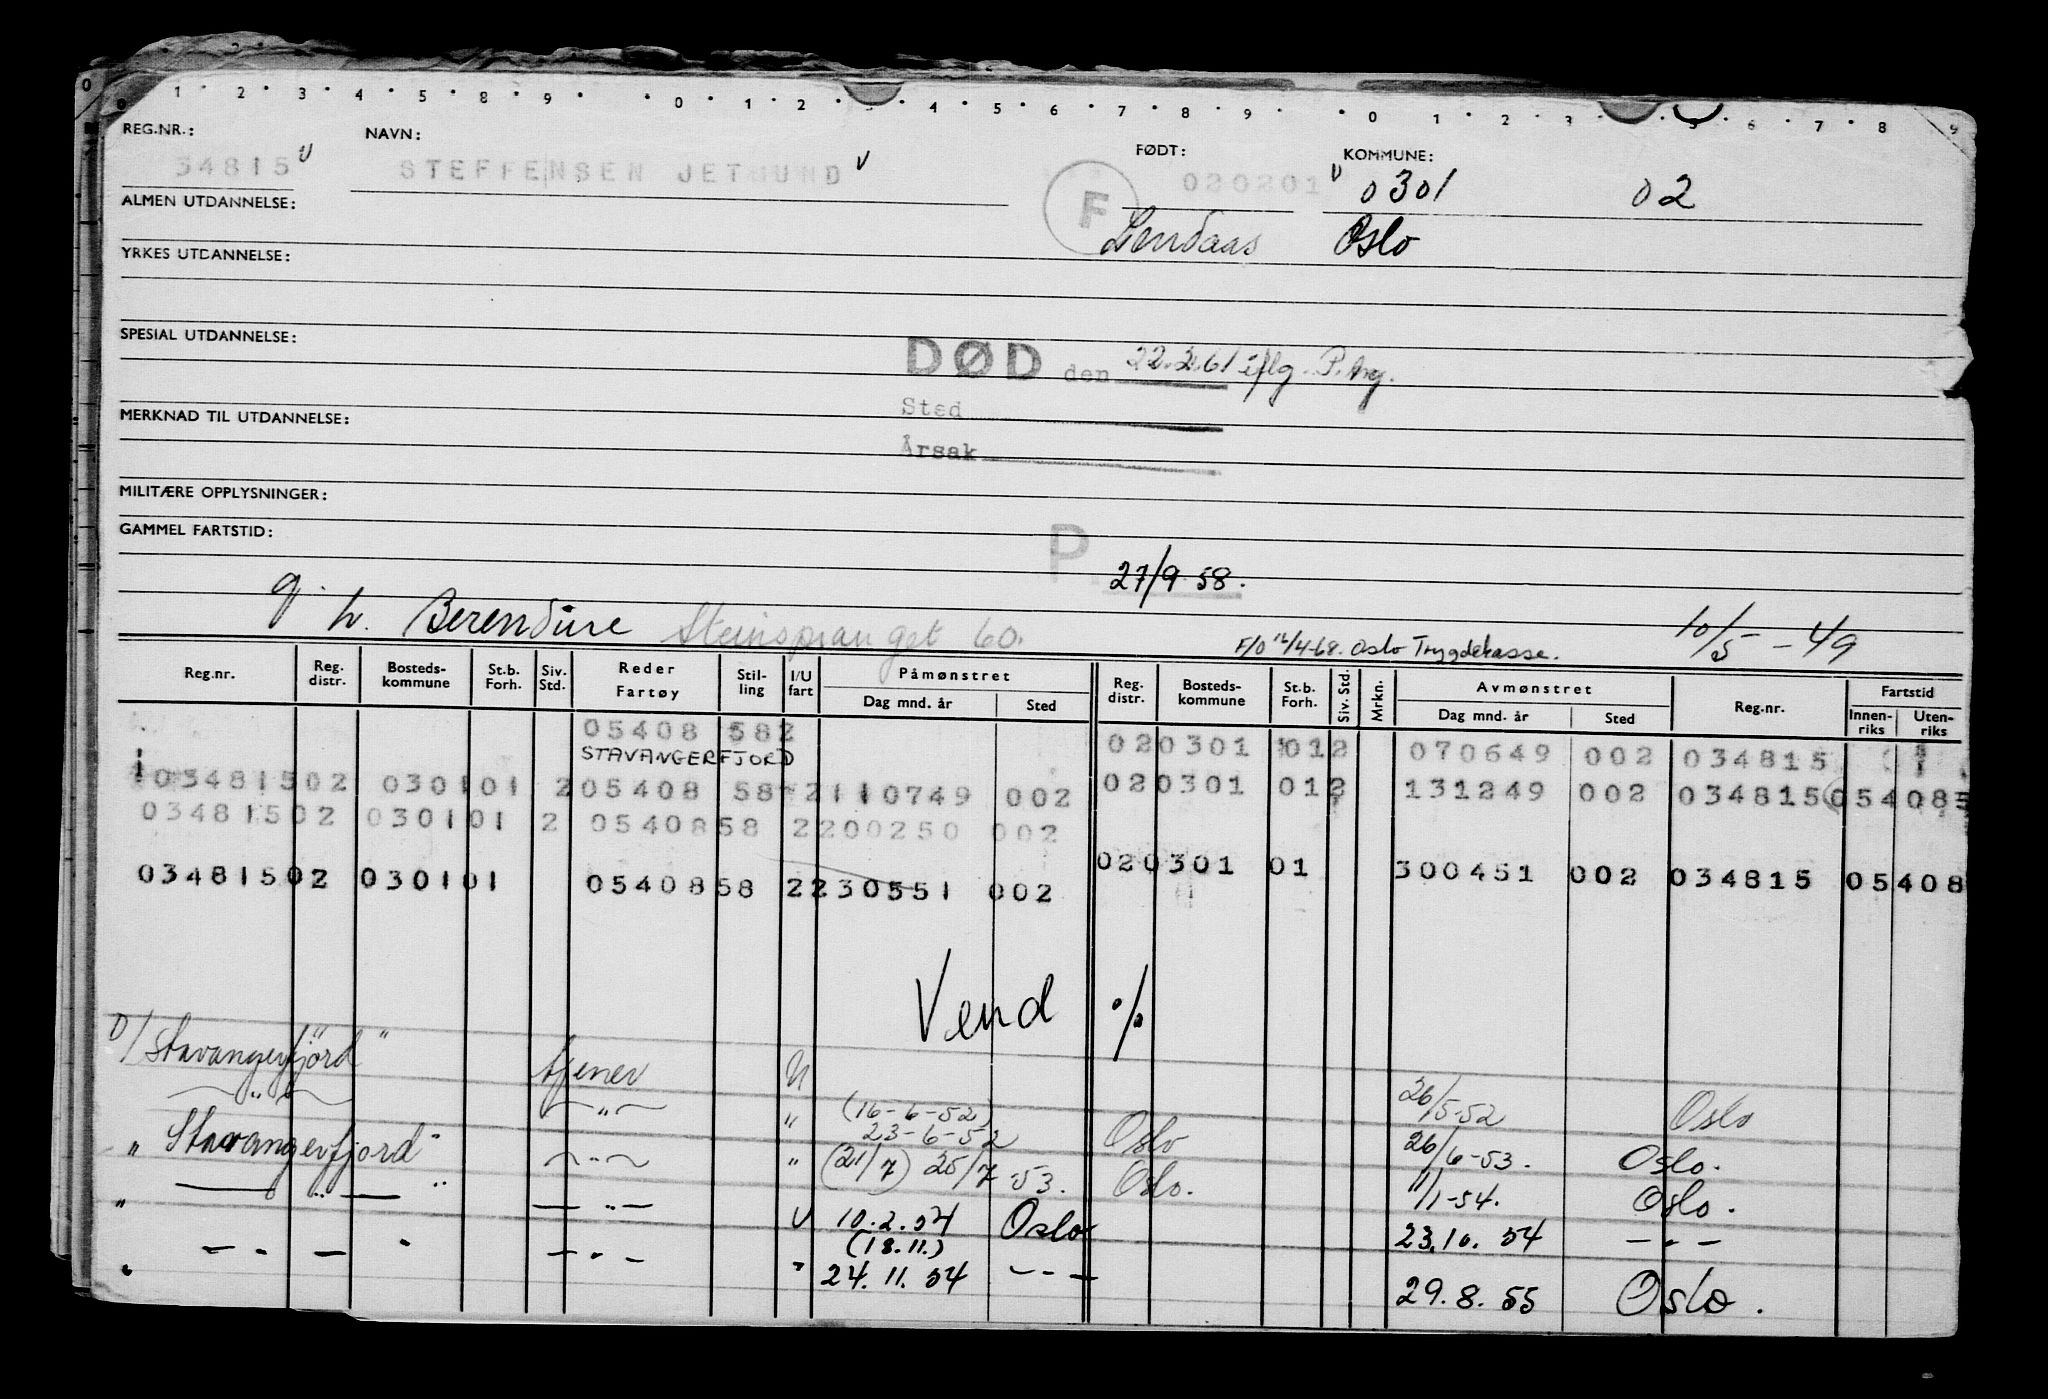 0 1 2 3 4 5 8 9 0 1 2 4 5 6 7 8 9 0 1 2 3 5 6 7 8 9
REG.NR.: NAVN: FØDT: KOMMUNE:
34815 STEFFENSEN JETMUND 020201 0301 02
F
ALMEN UTDANNELSE: Oslo
YRKES UTDANNELSE:
SPESIAL UTDANNELSE:
DØD den 22.2.61 iflg. P.
Sted
MERKNAD TIL UTDANNELSE:
Årsak
MILITÆRE OPPLYSNINGER:
GAMMEL FARTSTID:
P. 27/9 58.
g. h. Steinspranget 60. F/O 16/4-68. Oslo Trygdekasse. 10/5 - 49
Reg.nr. Reg. distr. Bosteds-kommune St.b. Forh. Siv. Std. Reder Fartøy Stil-ling I/U fart Påmønstret Reg. distr. Bosteds-kommune St.b. Forh. Siv. Std. Mrkn. Avmønstret Reg.nr. Fartstid
Dag mnd. år Sted Dag mnd. år Sted Innen-riks Uten-riks
05408 582
STAVANGERFJORD 020301 012 070649 002 034815
03481502 030101 2 05408 58 2110749 002 020301 012 131249 002 034815 054085
03481502 030101 2 0540858 2200250 002
020301 01 300451 002 034815 05408
03481502 030101 0540858 2230551 002
Vend %
D/S "Stavangerfjord" tjener U 26/5-52 Oslo
" " " (16-6-52) 23-6-52 Oslo 26/6-53. Oslo.
" Stavangerfjord" " " (21/7) 25/7-53. Oslo. 11/1-54. Oslo.
" — " — " — " — U 10.2.54 Oslo 23.10.54 — " —
" — " — " — " — " (18.11.) 24.11.54 — " — 29.8.55 Oslo.